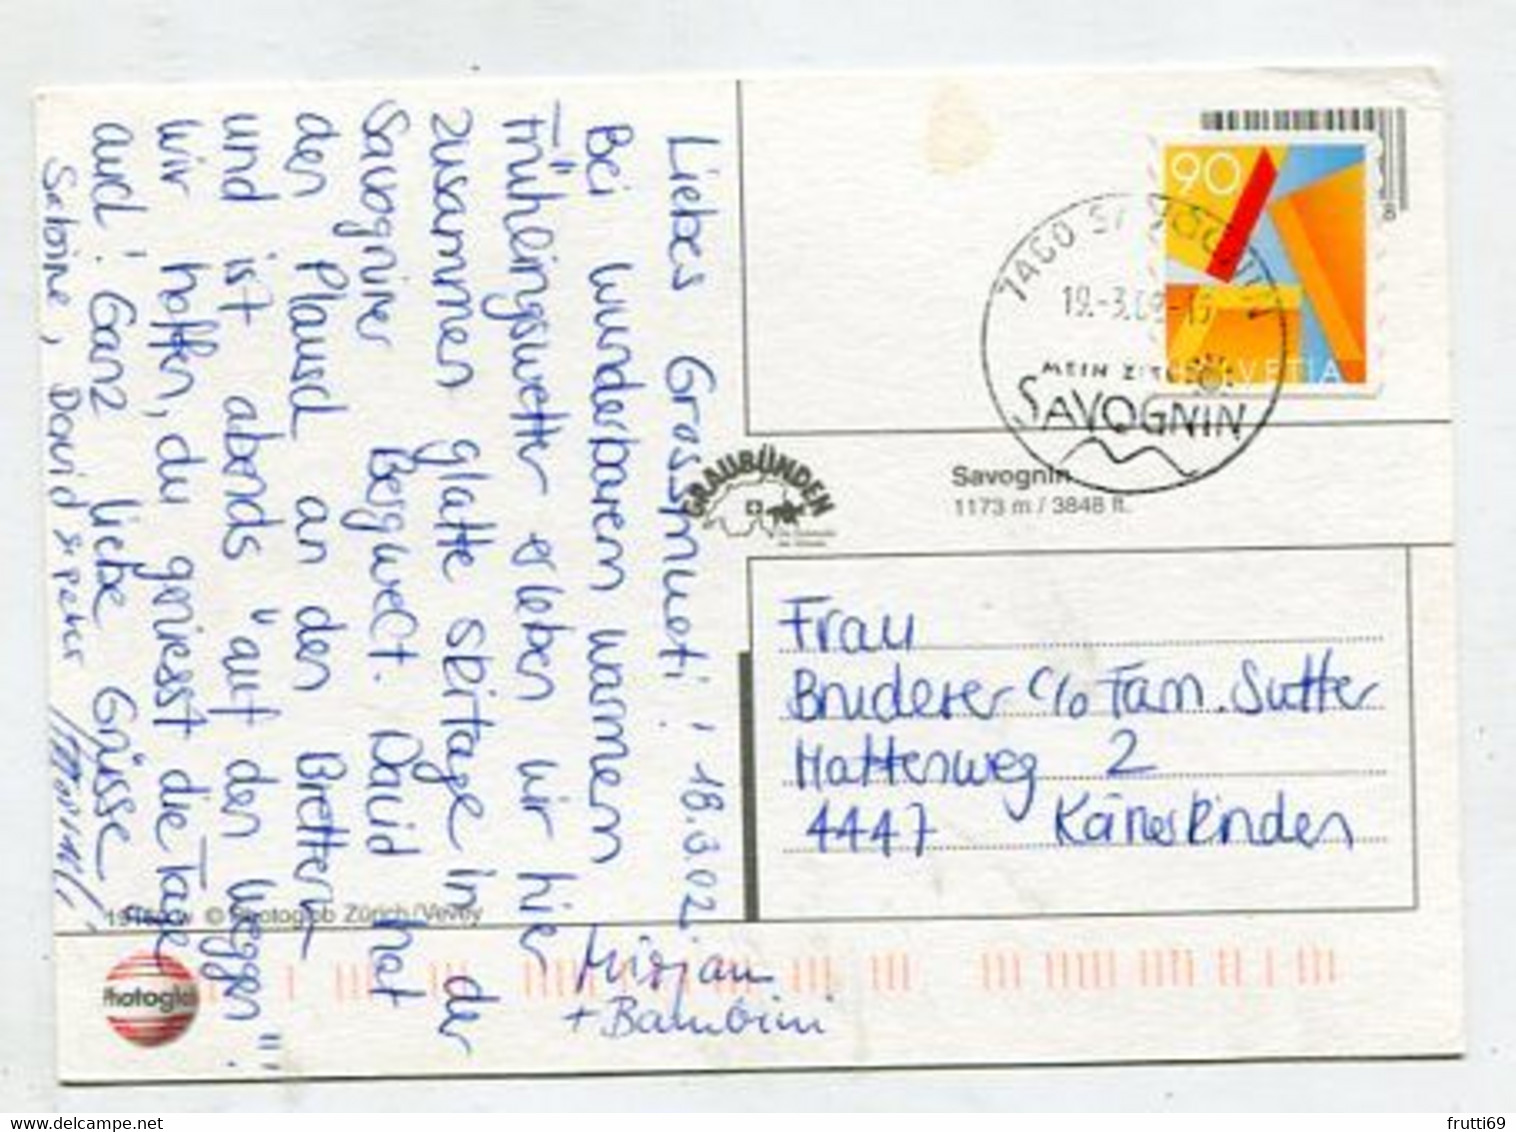 Liebes Grossmueti, 18.3.02
Bei wunderbaren warmen
Frühlingswetter erleben wir hier
zusammen glatte Skitage in der
Savogniner Bergwelt. David hat
den Plausch an den Brettern
und ist abends "auf den Weggen"!
Wir hoffen, du geniesst die Tage
auch! Ganz liebe Grüsse
Sabine, David
Mirjam
+ Bambini
90
HELVETIA
7460 SAVOGNIN
MEIN
SAVOGNIN
GRAUBÜNDEN
Savognin
1173 m / 3848 ft.
Frau
Bruderer c/o Fam. Sutter
Mattenweg 2
4447 Känerkinden
© Photoglob Zürich/Vevey
Photoglob
frutti69